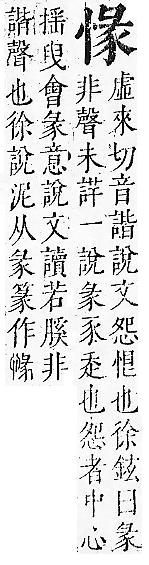 㥟
虛來切音諧說文怨恨也徐鉉曰彖
非聲未詳一說彖豕走也怨者中心
搖曳會彖意說文讀若膎非
諧聲也徐說泥从彖篆作